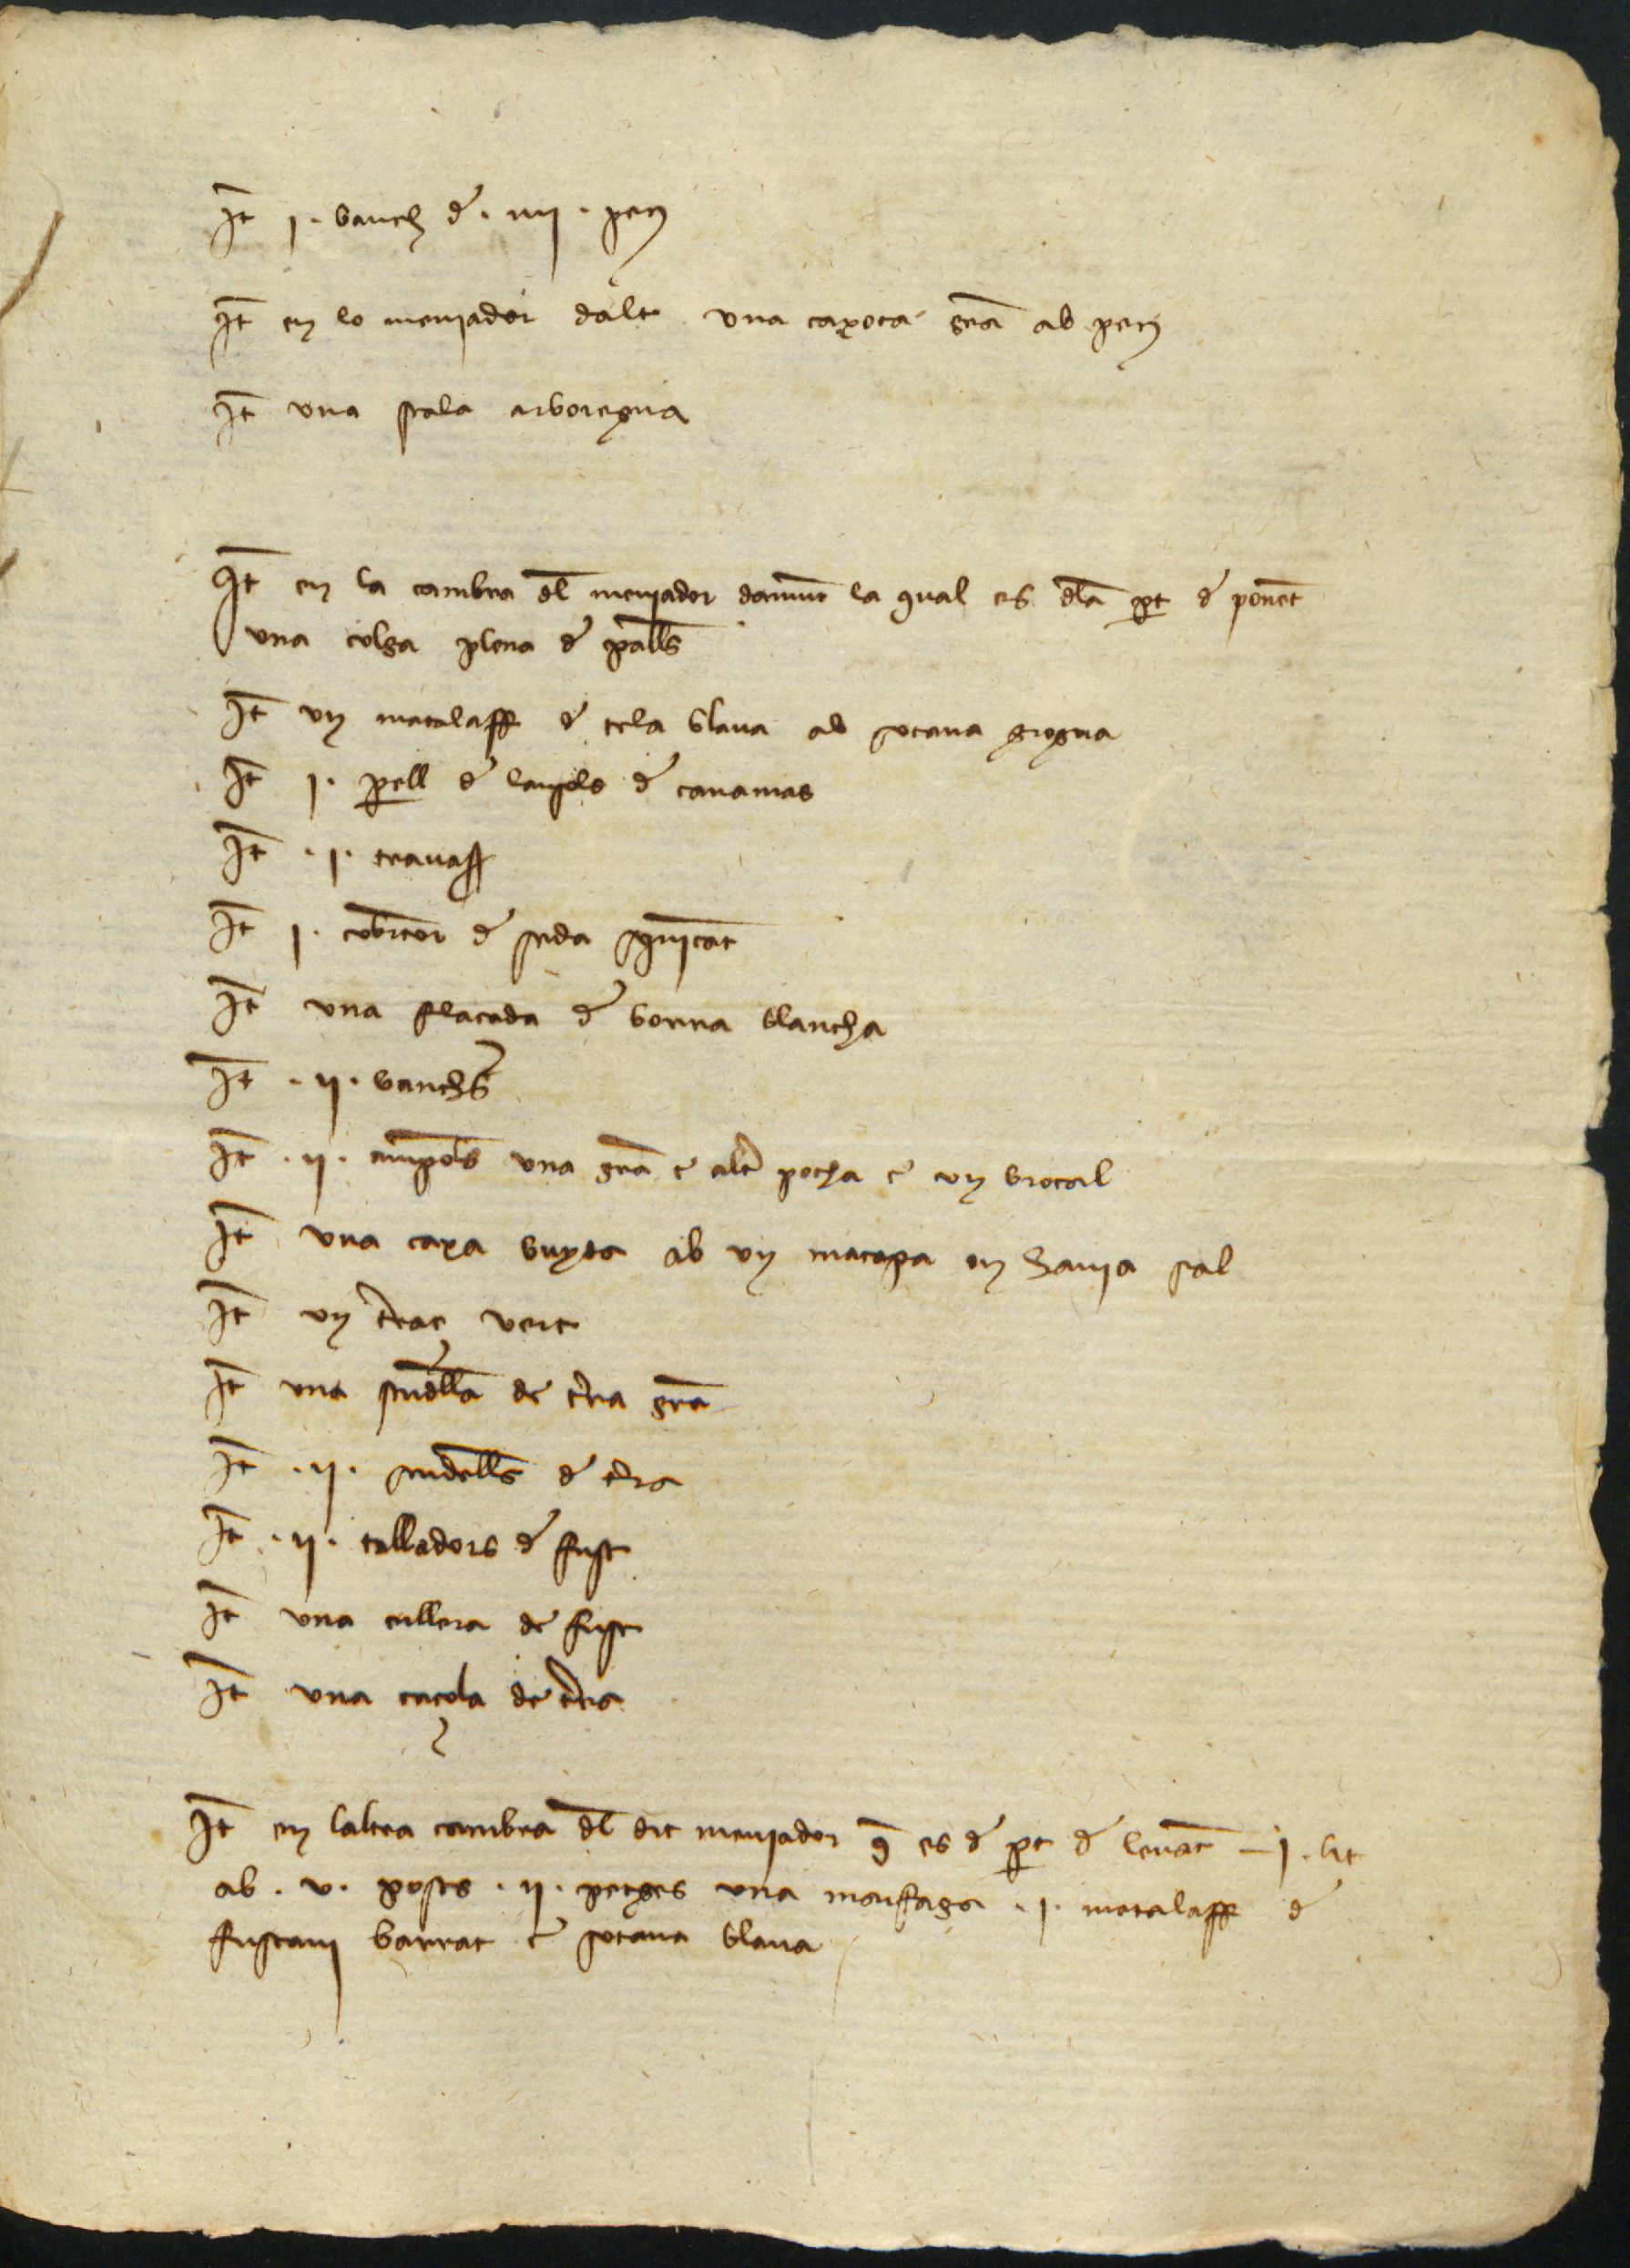 It I. banch d. IIII. peus
It en lo meniador dalt una caxota gra ab peus
It una scala arboregua
It en la cambra dl meniador damunt la qual es dla pt d ponet
una colga plena d palls
It un matalaff d tela blaua ab sotana grogua
It I. pell d lansols d canamas
It .I. trauaff
It I. cobrtor d seda squicat
It una flacada d borra blancha
It .II. banchs
It .II. ampols una gra e altr pocha e un brocal
It una caxa buyda ab un macapa on hauia sal
It un trac vert
It una scudlla de trra gra
It .II. scudells d tra
It .II. talladors d fust
It una cullera de fust
It una caçola de trra
It en laltra cambra dl dit meniador q es d pt d leuat — I. lit
ab . v. posts . II. petges una marfaga .I. matalaff d
fustani barrat e sotana blaua